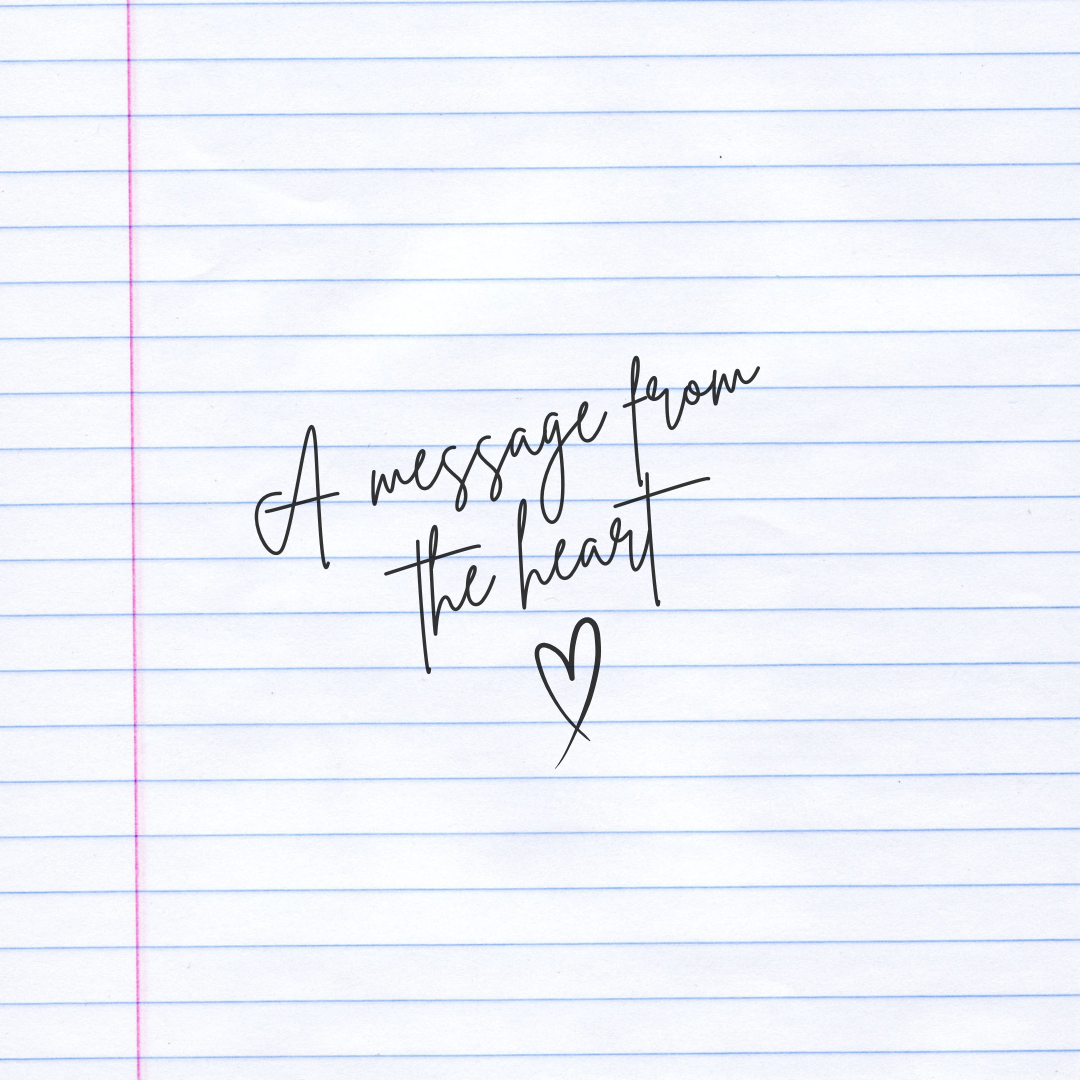 A message from
the heart